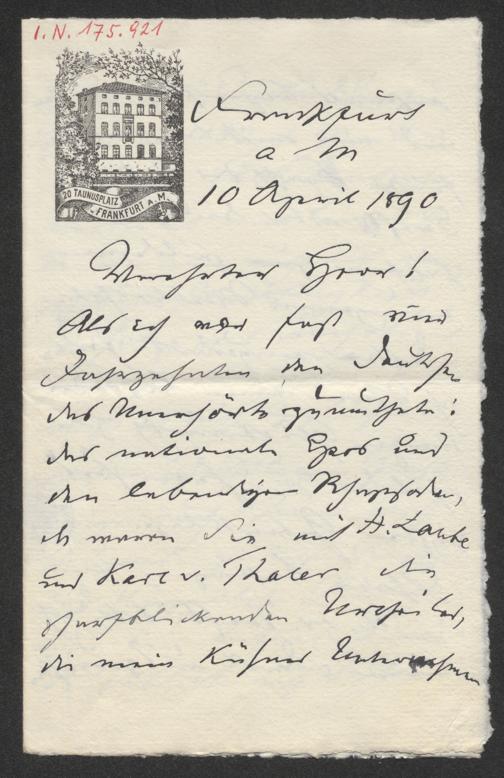 I. N. 175.921
20 TAUNUSPLATZ
FRANKFURT A. M.
Frankfurt
a M
10 April 1890
Verehrter Herr!
Als ich vor fast
Jahrzehnten den Deutschen
das Unerhörte zumuthete:
das nationale Epos und
den lebendigen Rhapsoden,
da waren Sie mit H. Laube
und Karl v. Thaler die
scharfblickenden Urtheiler,
die mein kühnes Unternehmen